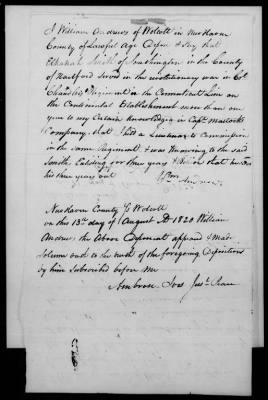 I William Andrews of Wolcott in New Haven
County of Lawful Age Depose & Say that
Elkanah Smith of Southington in the County
of Hartford Served in the revolutionary war in Col
Chandlers Regiment in the Connecticut Line on
the Continental Establishment more than one
year to my Certain knowledge in Capt Mattocks
Company, that I held a Lieutenants Commission
in the same Regiment & was knowing to the said
Smiths Enlisting for three years & that he
his three years out
Wm Andrews
New Haven County Ss Wolcott
on this 13th day of August AD 1820 William
Andrews the Above Deponent appeared & made
Solemn oath to the truth of the foregoing Deposition
by him Subscribed before me
Ambrose Ives Just Peace